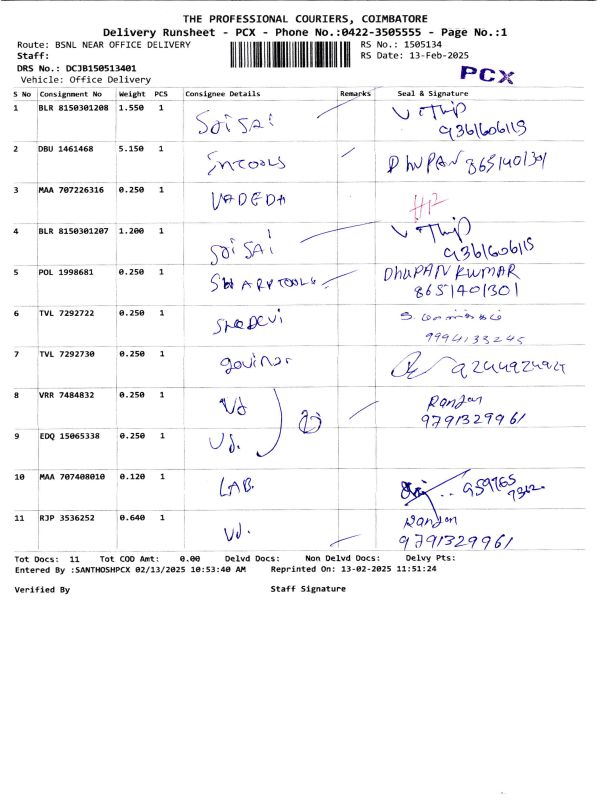 THE PROFESSIONAL COURIERS, COIMBATORE
Delivery Runsheet - PCX - Phone No.:0422-3505555 - Page No.:1
Route: BSNL NEAR OFFICE DELIVERY RS No.: 1505134
Staff: RS Date: 13-Feb-2025
DRS No.: DCJB150513401
Vehicle: Office Delivery PCX
S No Consignment No Weight PCS Consignee Details Remarks Seal & Signature
1 BLR 8150301208 1.550 1 SAI SAI
9361606115
2 DBU 1461468 5.150 1 DHUPAN 8651401301
3 MAA 707226316 0.250 1 VADEDA
4 BLR 8150301207 1.200 1 SAI SAI
9361606115
5 POL 1998681 0.250 1 DHUPAN KUMAR
8651401301
6 TVL 7292722 0.250 1 SREDEVI
9994133245
7 TVL 7292730 0.250 1
8 VRR 7484832 0.250 1 Vd Ranjan
9791329961
9 EDQ 15065338 0.250 1 Vd.
10 MAA 707408010 0.120 1 LAB. 959765
11 RJP 3536252 0.640 1 Vd. Ranjan
9791329961
Tot Docs: 11 Tot COD Amt: 0.00 Delvd Docs: Non Delvd Docs: Delvy Pts:
Entered By :SANTHOSHPCX 02/13/2025 10:53:40 AM Reprinted On: 13-02-2025 11:51:24
Verified By Staff Signature